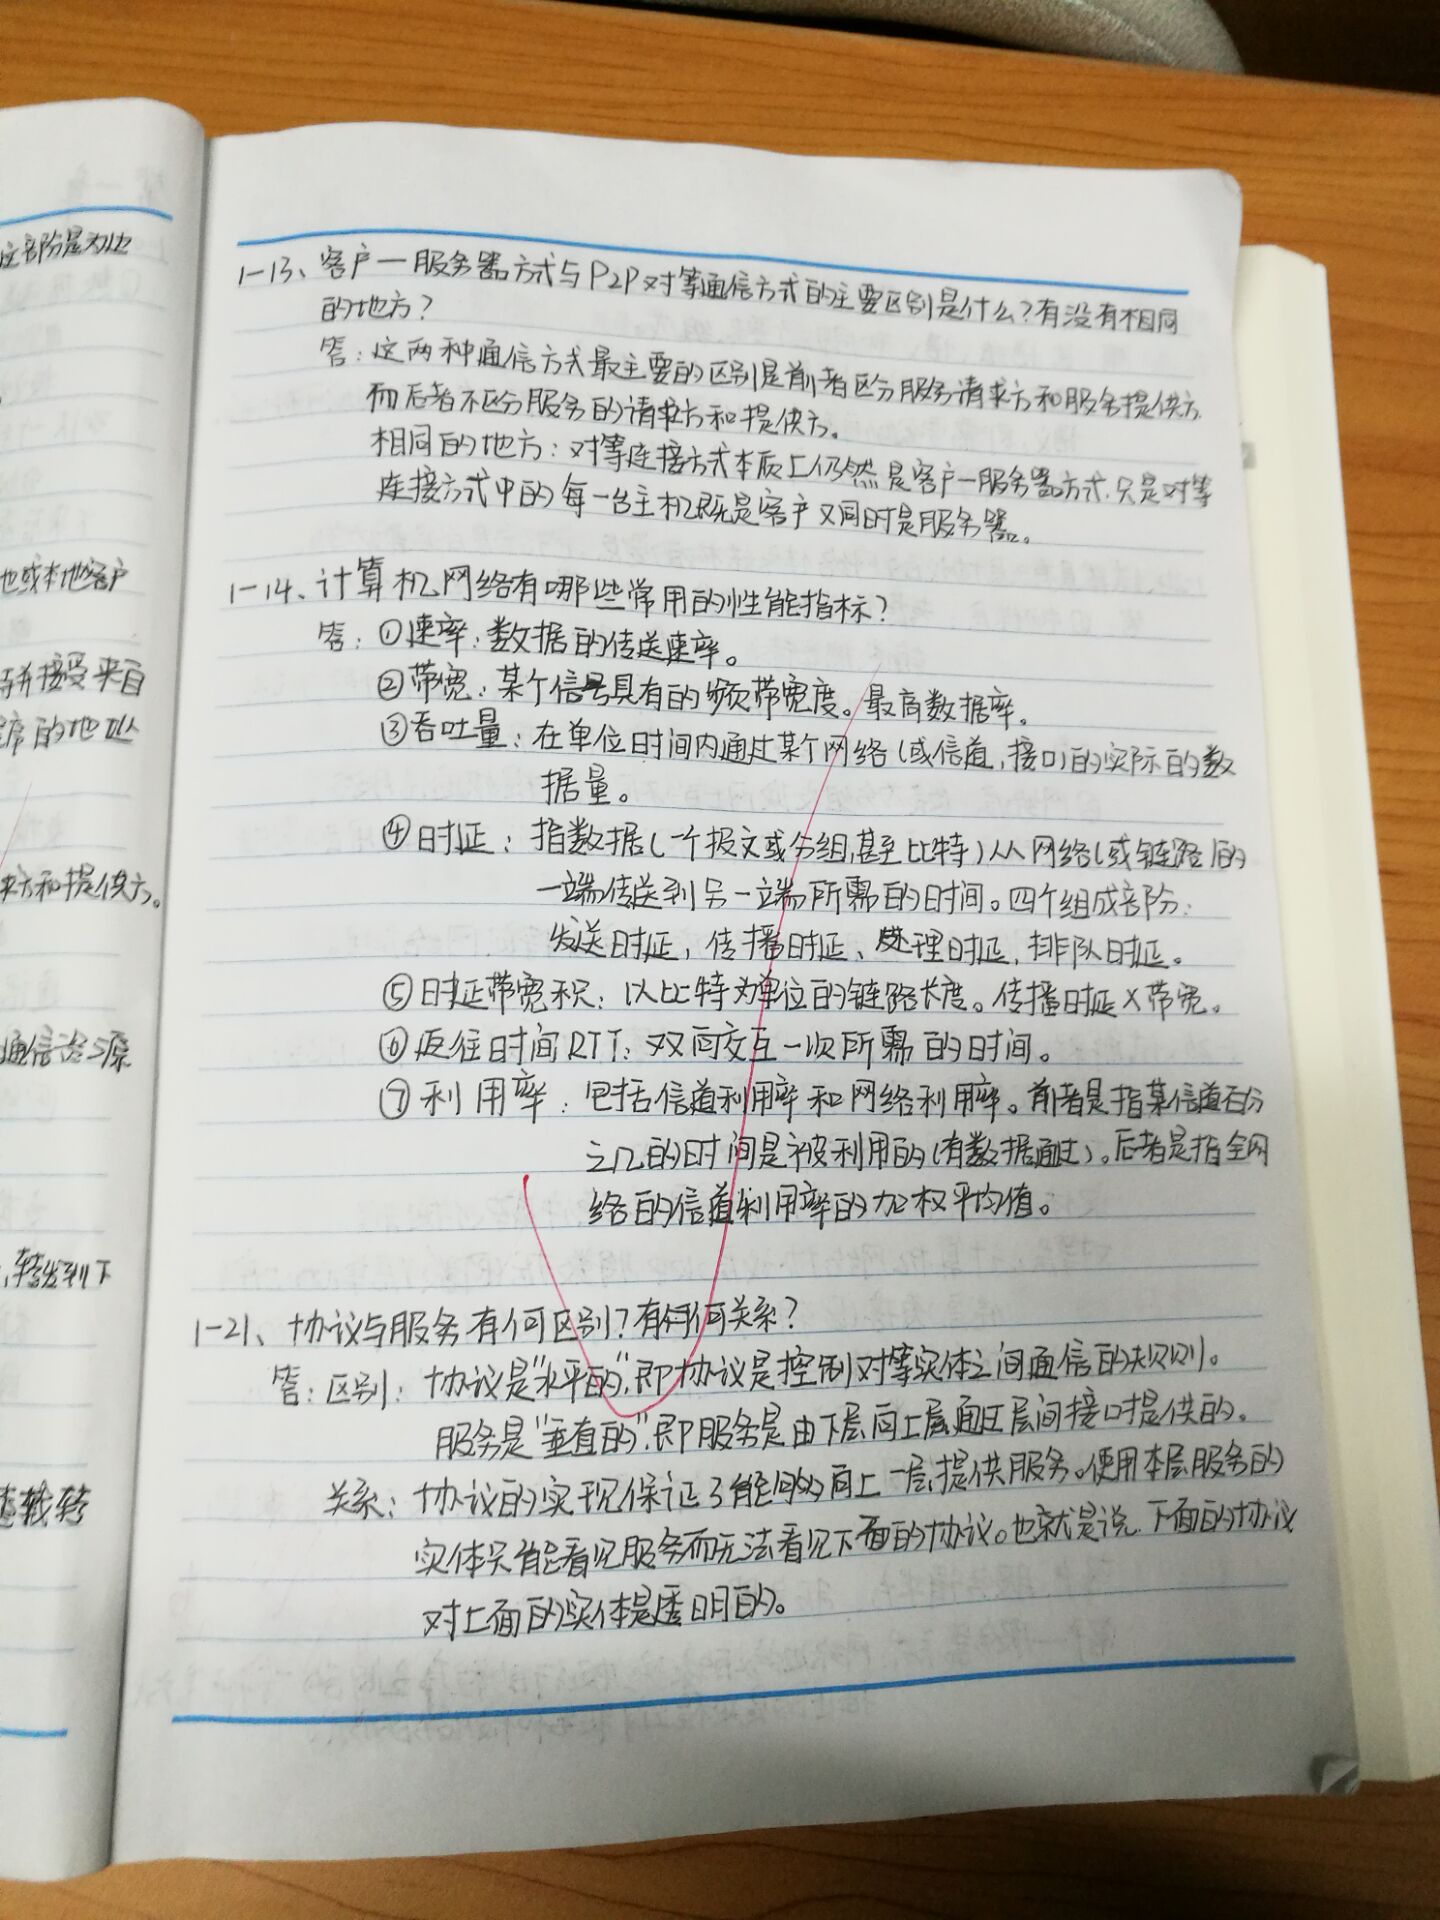 这部分是为边
地或本地客户
待并接受来自
序的地址
求方和提供方。
通信资源
,转发到下
1-13、客户—服务器方式与P2P对等通信方式的主要区别是什么?有没有相同
的地方?
答:这两种通信方式最主要的区别是前者区分服务请求方和服务提供方,
而后者不区分服务的请求方和提供方。
相同的地方:对等连接方式本质上仍然是客户—服务器方式,只是对等
连接方式中的每一台主机既是客户又同时是服务器。
1-14、计算机网络有哪些常用的性能指标?
答:①速率:数据的传送速率。
②带宽:某个信号具有的频带宽度。最高数据率。
③吞吐量:在单位时间内通过某个网络(或信道,接口)的实际的数
据量。
④时延:指数据(一个报文或分组,甚至比特)从网络(或链路)的
一端传送到另一端所需的时间。四个组成部分:
发送时延,传播时延、处理时延,排队时延。
⑤时延带宽积:以比特为单位的链路长度。传播时延×带宽。
⑥返往时间RTT:双向交互一次所需的时间。
⑦利用率:包括信道利用率和网络利用率。前者是指某信道百分
之几的时间是被利用的(有数据通过)。后者是指全网
络的信道利用率的加权平均值。
1-21、协议与服务有何区别?有何关系?
答:区别:协议是“水平的”,即协议是控制对等实体之间通信的规则。
服务是“垂直的”,即服务是由下层向上层通过层间接口提供的。
关系:协议的实现保证了能够向上一层提供服务。使用本层服务的
实体只能看见服务而无法看见下面的协议。也就是说,下面的协议
对上面的实体是透明的。